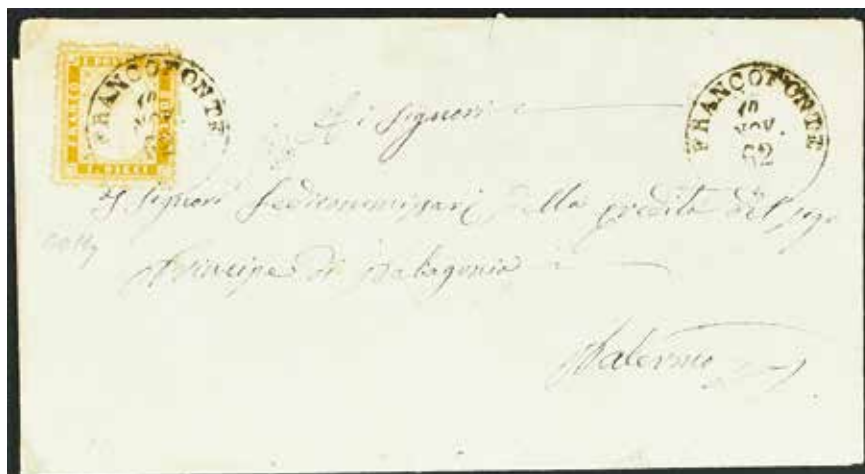 FRANCO
C. DIECI
FRANCOFONTE
10
NOV.
FRANCOFONTE
10
NOV.
62
Signori
Signori Fedecommissari della eredità del
Principe di Palagonia
Palermo